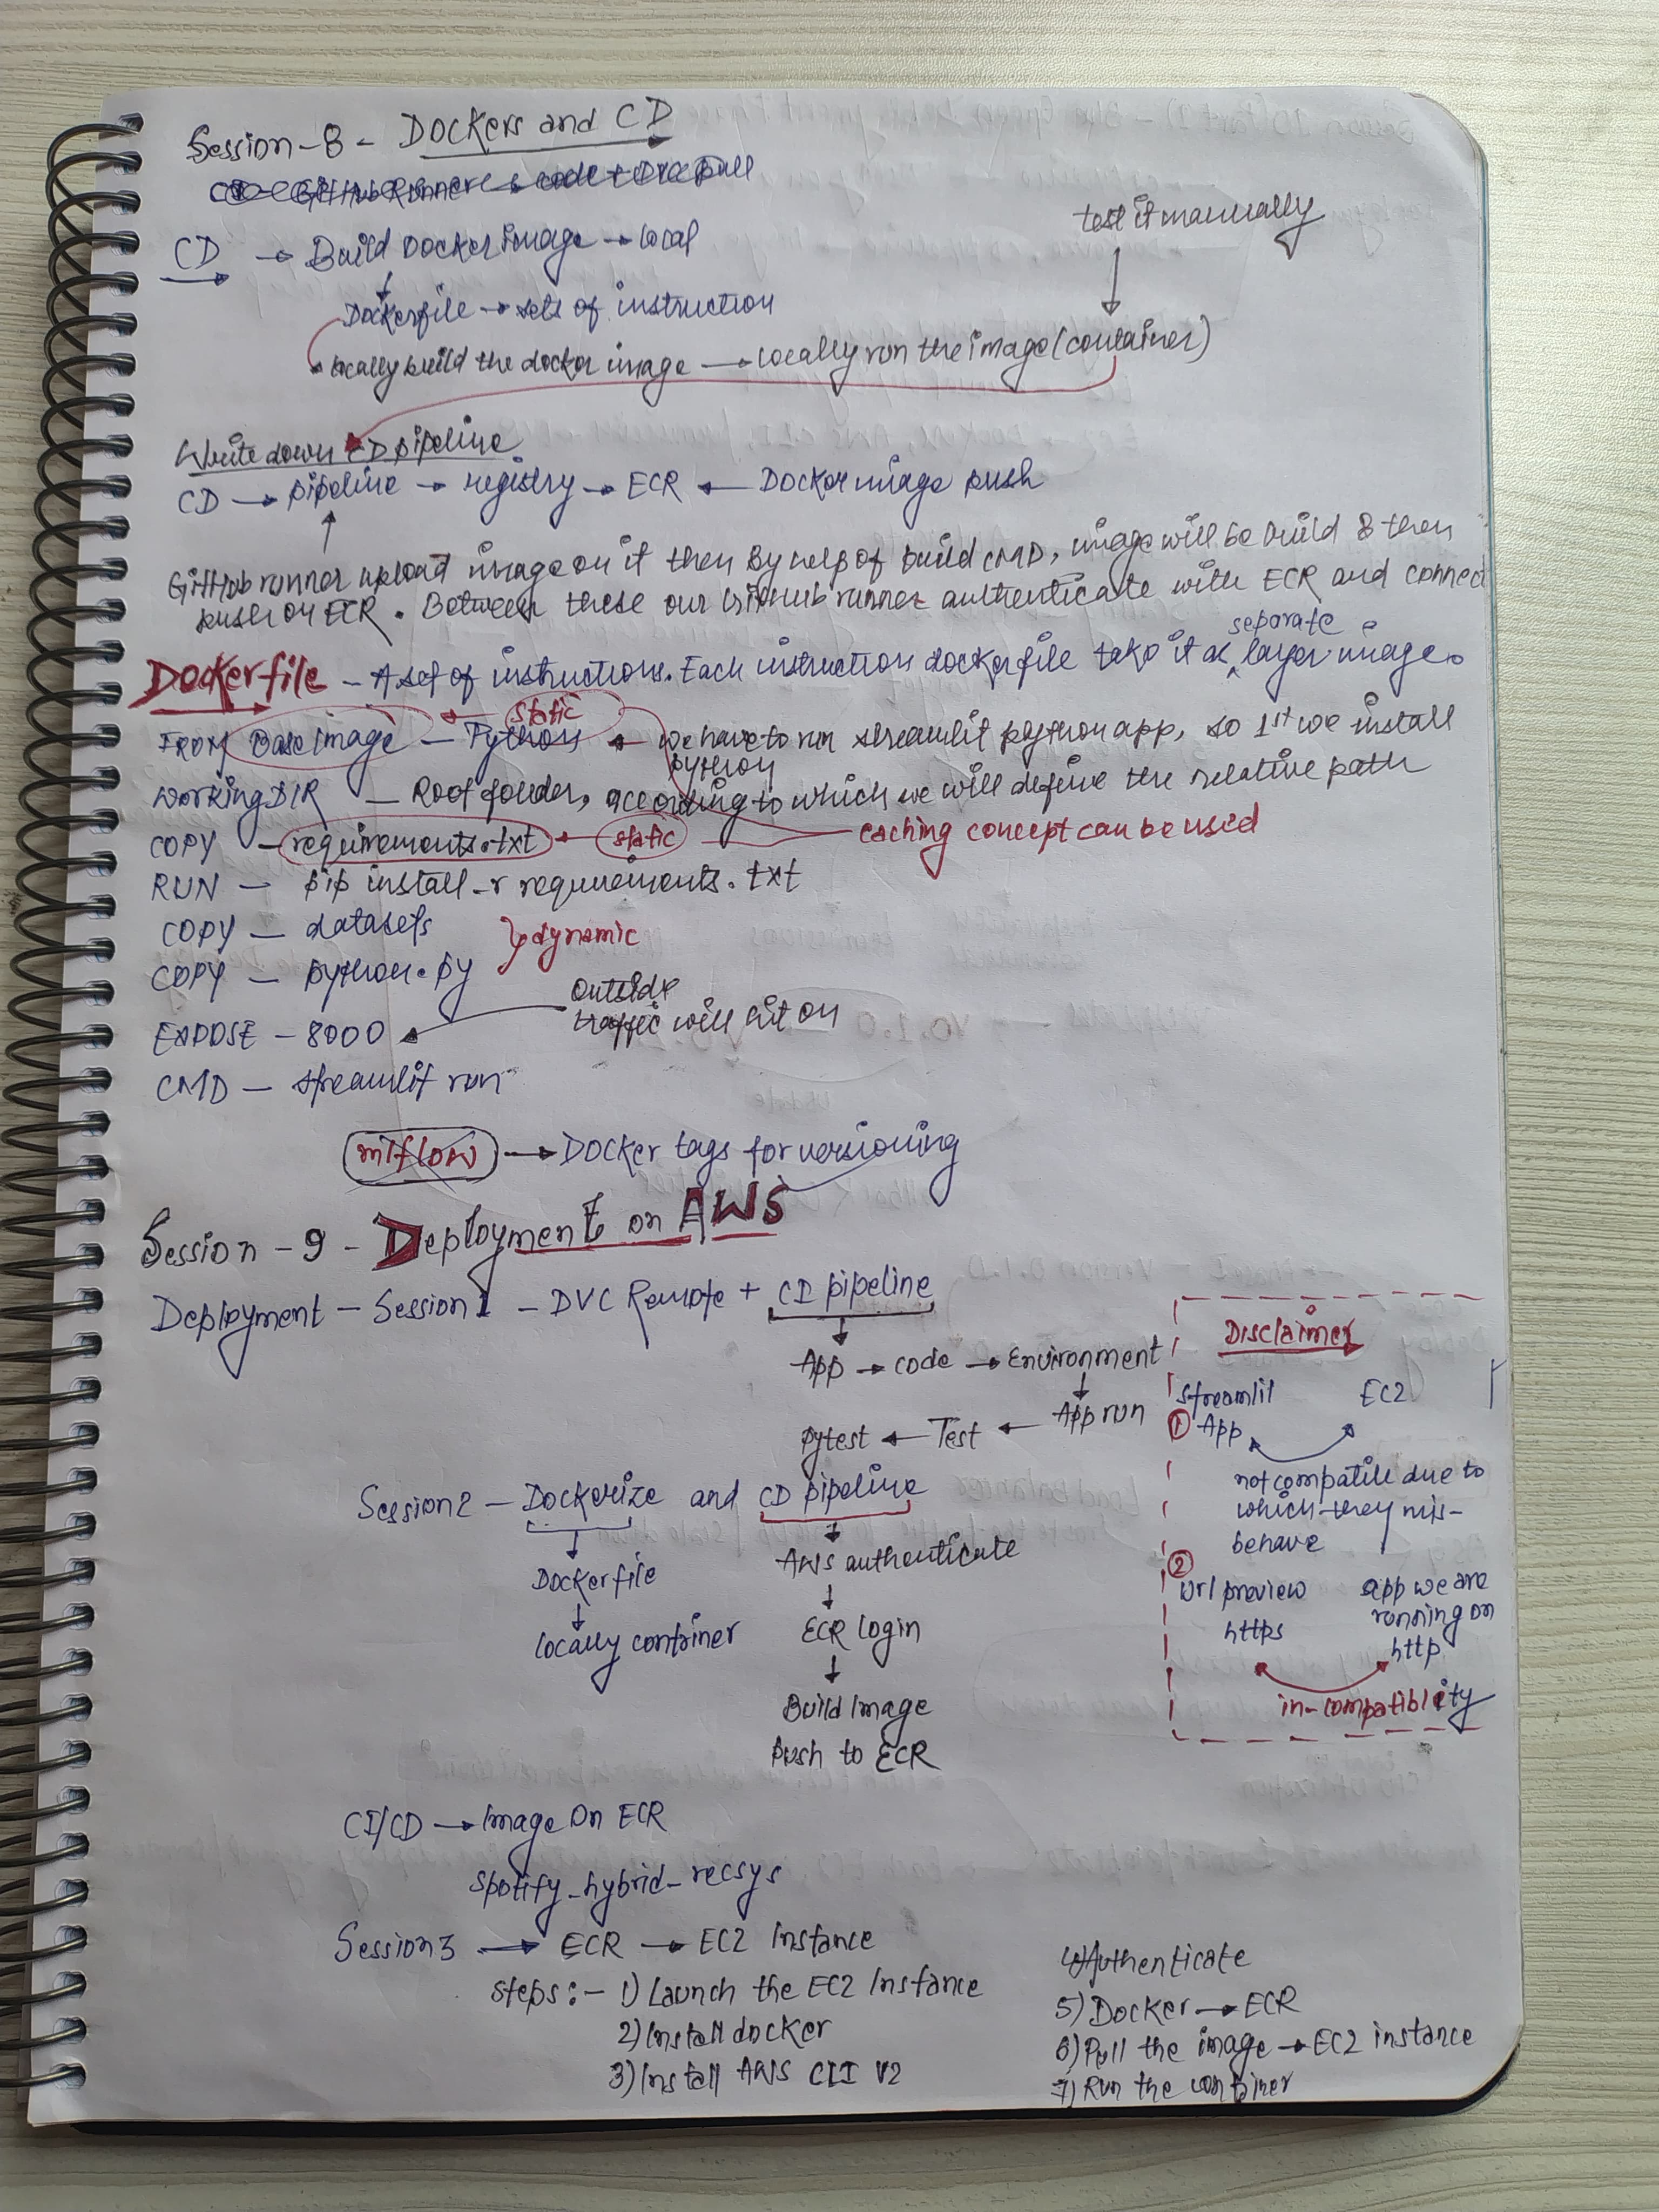 Session-8 - Dockers and CD
CD → Build Docker image → local
test it manually
↓
Dockerfile → sets of instruction
locally build the docker image → locally run the image (container)
Write down CD pipeline
CD → pipeline → registry → ECR ← Docker image push
GitHub runner upload image on it then By help of build CMD, image will be build & then
push on ECR. Between these our GitHub runner authenticate with ECR and connect
separate
Dockerfile - A set of instructions. Each instruction dockerfile take it as layer image.
static
FROM Base image - Python ← we have to run streamlit python app, so 1st we install
python
WORKINGDIR - Root folder, according to which we will define the relative path
COPY - requirements.txt ← static caching concept can be used
RUN - pip install -r requirements.txt
COPY - datasets
} dynamic
COPY - python.py
outside
EXPOSE - 8000 ← traffic will hit on
CMD - streamlit run
mlflow → Docker tags for versioning
Session - 9 - Deployment on AWS
Deployment - Session 1 - DVC Remote + CI pipeline
↓
App → code → Environment
↓
pytest ← Test ← App run
Session 2 - Dockerize and CD pipeline
↓ ↓
Dockerfile AWS authenticate
↓ ↓
locally container ECR login
↓
Build Image
push to ECR
Disclaimer
Streamlit EC2
① App
not compatible due to
which they mis-
behave
②
Url preview app we are
https running on
http
in-compatiblity
CI/CD → Image On ECR
spotify_hybrid_recsys
Session 3 → ECR → EC2 Instance
steps :- 1) Launch the EC2 Instance
2) Install docker
3) Install AWS CLI V2
4) Authenticate
5) Docker → ECR
6) Pull the image → EC2 instance
7) Run the container